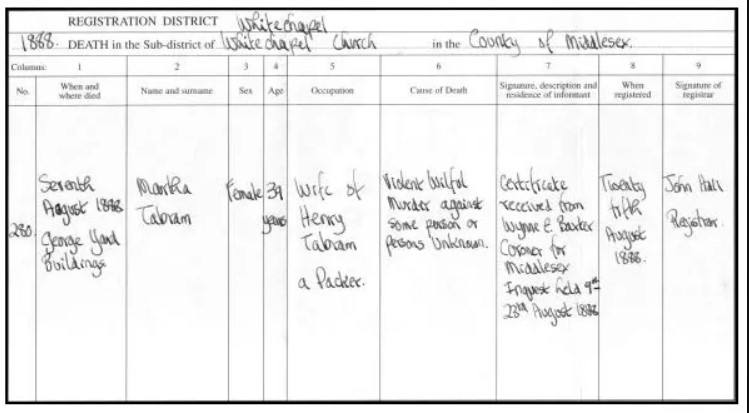 REGISTRATION DISTRICT Whitechapel
1888. DEATH in the Sub-district of Whitechapel Church in the County of Middlesex.
Columns: 1 2 3 4 5 6 7 8 9
No. When and where died Name and surname Sex Age Occupation Cause of Death Signature, description and residence of informant When registered Signature of registrar
280.
Seventh
August 1888
George Yard
Buildings
Martha
Tabram
Female
39
years
Wife of
Henry
Tabram
a Packer.
Violent Wilful
Murder against
some person or
persons Unknown.
Certificate
received from
Wynne E. Baxter
Coroner for
Middlesex
Inquest held 9th
23rd August 1888
Twenty
fifth
August
1888.
John Hall
Registrar.